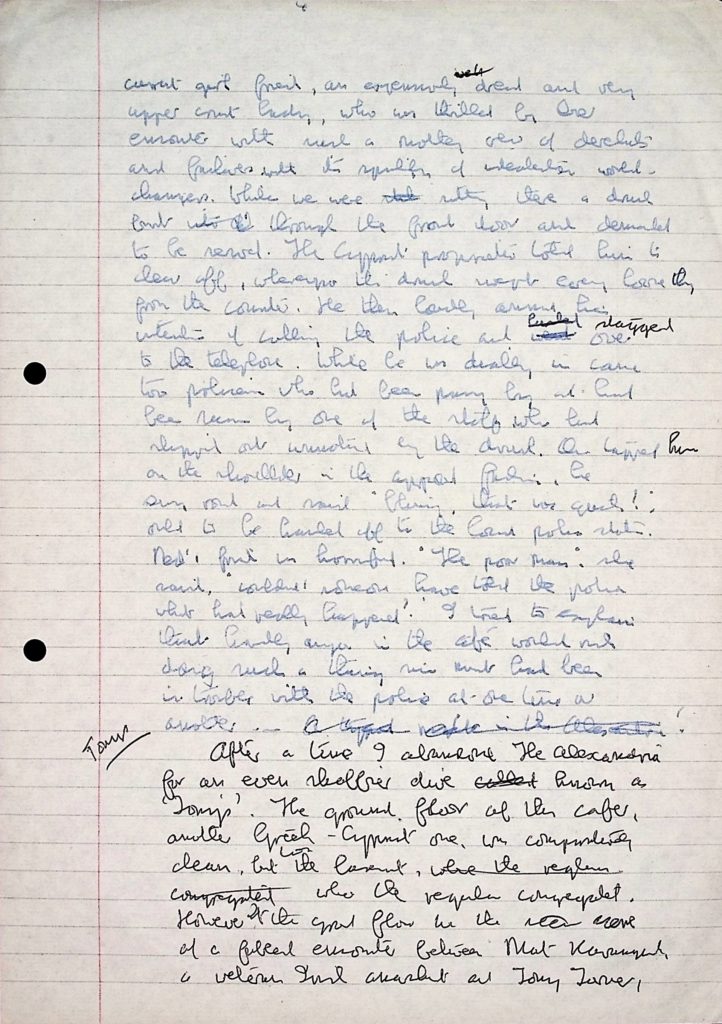 current girl friend, an expensively well dressed and very
upper crust lady, who was thrilled by her
encounter with such a motley crew of derelicts
and with its of world-
changers. While we were sitting there a drunk
burst into through the front door and demanded
to be served. The Cypriot proprietor told him to
clear off, whereupon the drunk swept every
from the counter. He then loudly announced his
intention of calling the police and staggered over
to the telephone. While he was in came
two policemen who had been passing by and had
been by one of the staff who had
slipped out unnoticed by the drunk. One tapped him
on the shoulder in the approved fashion, he
swung round and said "Blimey, that was quick!",
only to be hauled off to the local police station.
friend was horrified. "The poor man", she
said, "couldn't someone have told the police
what had really happened?" I tried to explain
that hardly anyone in the café would risk
doing such a thing since most had been
in trouble with the police at one time or
another.
Tonys
After a time I abandoned The Alexandria
for an even shabbier dive called known as
'Tony's'. The ground floor of this cafe,
another Greek-Cypriot one, was comparatively
clean, but the basement, where the regulars
congregated
However the ground floor was the scene
of a encounter between Mat Kavanagh,
a veteran Irish anarchist and Tony Turner,